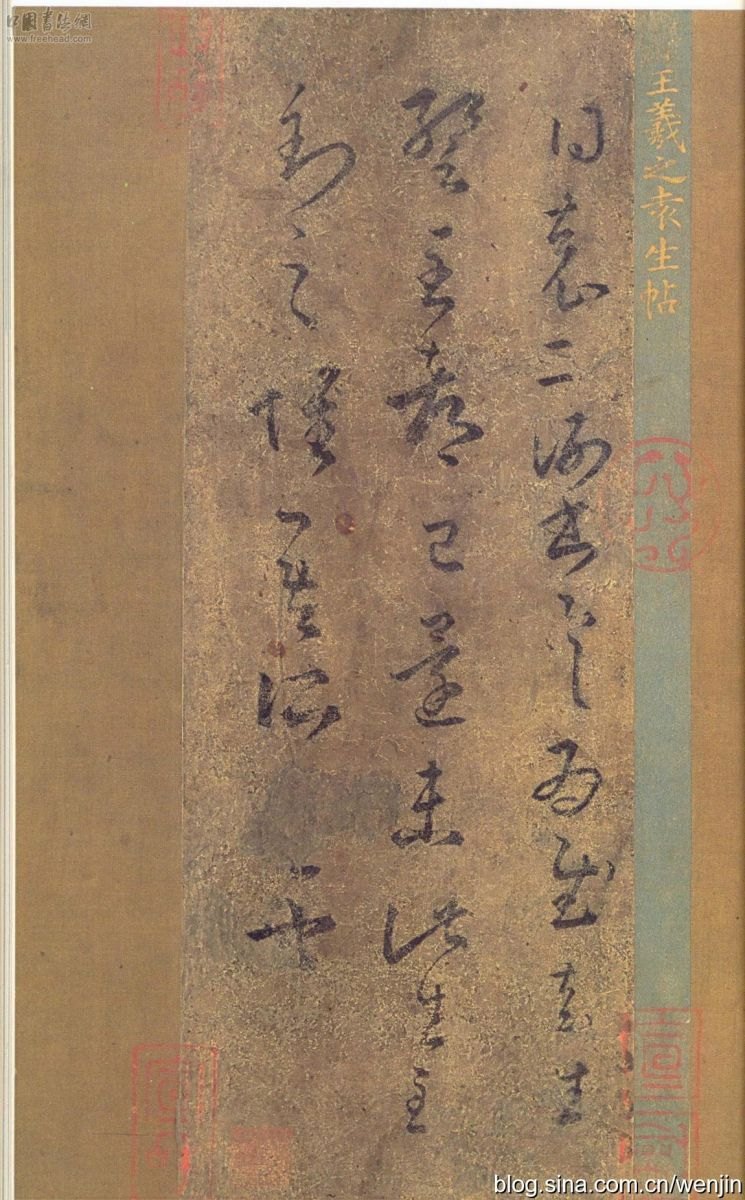 中國書法網
www.freehead.com
王羲之袁生帖
得袁二謝書具為慰袁生
暫至都已還未此生至
到之懷吾所也
blog.sina.com.cn/wenjin